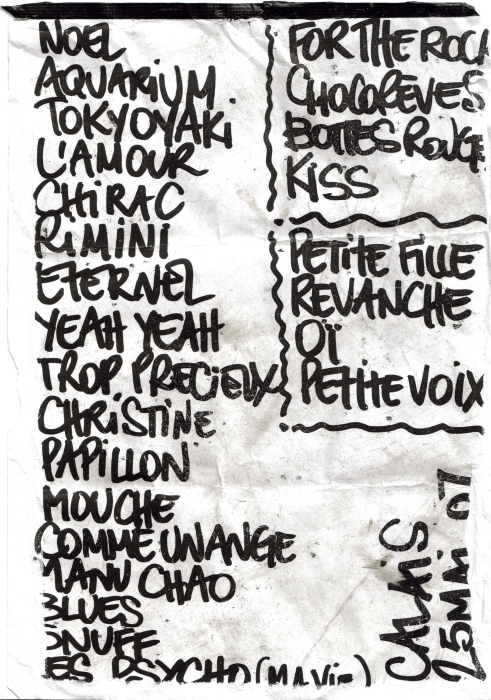 NOEL
AQUARIUM
TOKYOYAKI
L'AMOUR
CHIRAC
RIMINI
ETERNEL
YEAH YEAH
TROP PRECIEUX
CHRISTINE
PAPILLON
MOUCHE
COMME UN ANGE
MANU CHAO
BLUES
ES PSYCHO (MA VIE)
FOR THE ROCK
CHOCORÊVES
BOTTES ROUGE
KISS
PETITE FILLE
REVANCHE
OÏ
PETITE VOIX
CALAIS
25 MAI 07